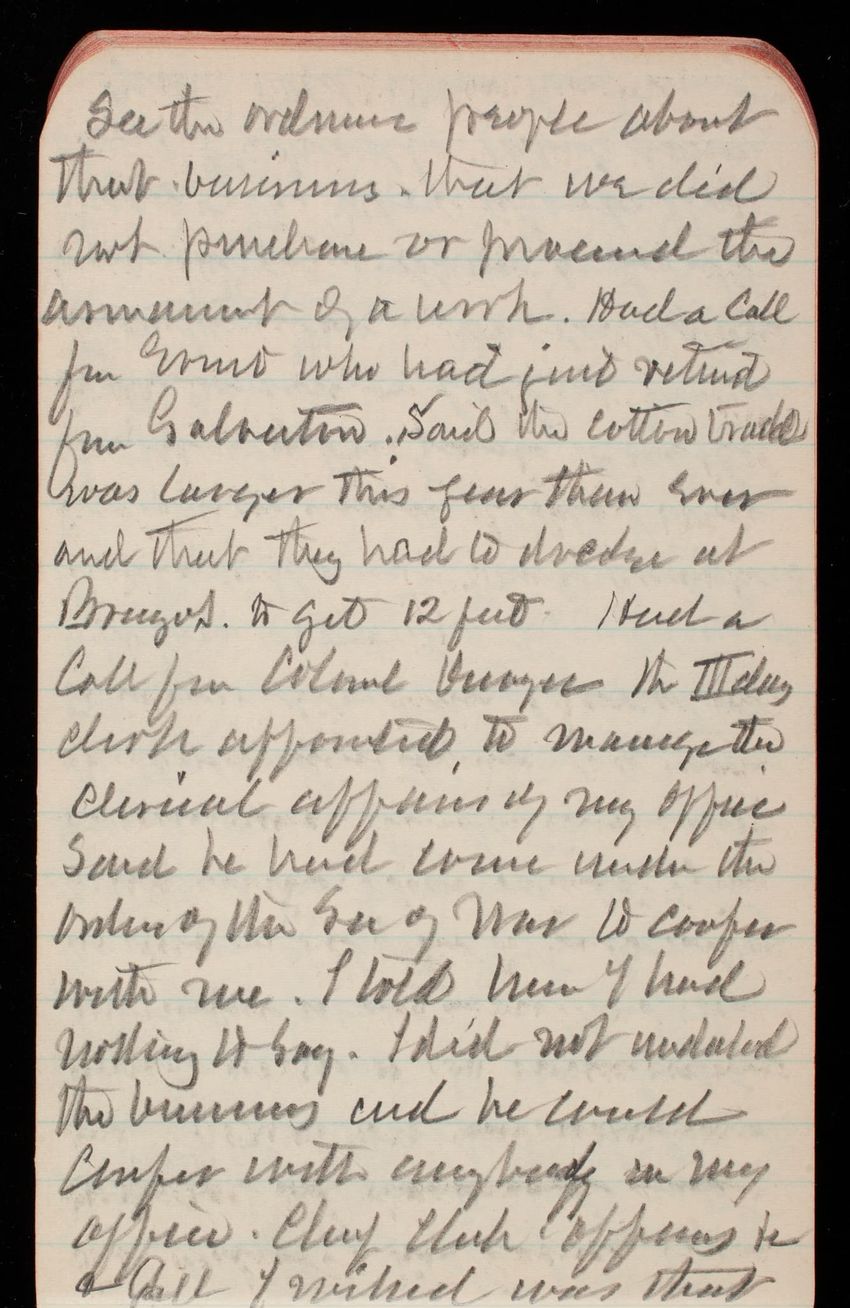 See the ordnance people about
that business. that we did
not purchase or procured the
armament of a work. Had a Call
from Ernst who had just returnd
from Galveston. Said the cotton trade
was larger this year than ever
and that they had to dredge at
Brazos. to get 12 feet Had a
Call from Colonel the III day
clerk appointed to manage the
clerical affairs of my office
Said he had come under the
orders of the Sec of War to confer
with me. I told him I had
nothing to say. I did not
the business and he could
Confer with anybody in my
office. Chief Clerk
I wished was that